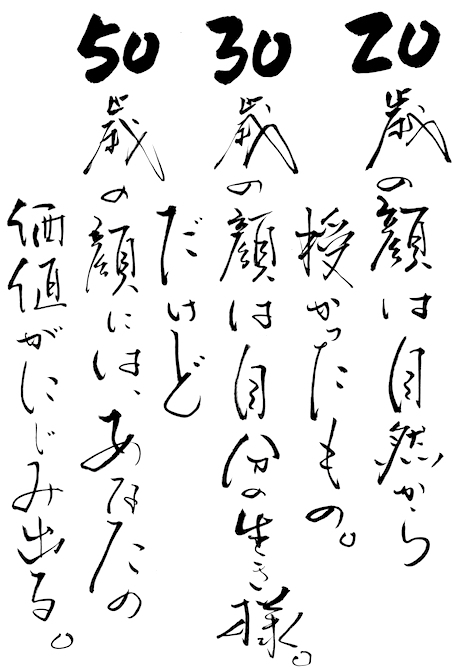 20歳の顔は自然から
授かったもの。
30歳の顔は自分の生き様。
だけど
50歳の顔には、あなたの
価値がにじみ出る。